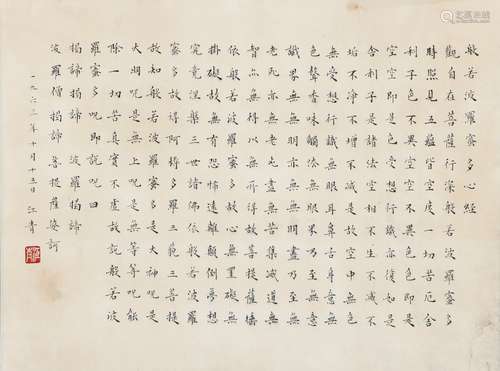 般若波羅蜜多心經
觀自在菩薩行深般若波羅蜜多
時照見五蘊皆空度一切苦厄舍
利子色不異空空不異色色即是
空空即是色受想行識亦復如是
舍利子是諸法空相不生不滅不
垢不淨不增不減是故空中無色
無受想行識無眼耳鼻舌身意無
色聲香味觸法無眼界乃至無意
識界無無明亦無無明盡乃至無
老死亦無老死盡無苦集滅道無
智亦無得以無所得故菩提薩埵
依般若波羅蜜多故心無罣礙無
掛礙故無有恐怖遠離顛倒夢想
究竟涅槃三世諸佛依般若波羅
蜜多故得阿耨多羅三藐三菩提
故知般若波羅蜜多是大神呪是
大明呪是無上呪是無等等呪能
除一切苦真實不虛故說般若波
羅蜜多呪即說呪曰
揭諦揭諦 波羅揭諦
波羅僧揭諦 菩提薩婆訶
一九六三年十月十三日 江青